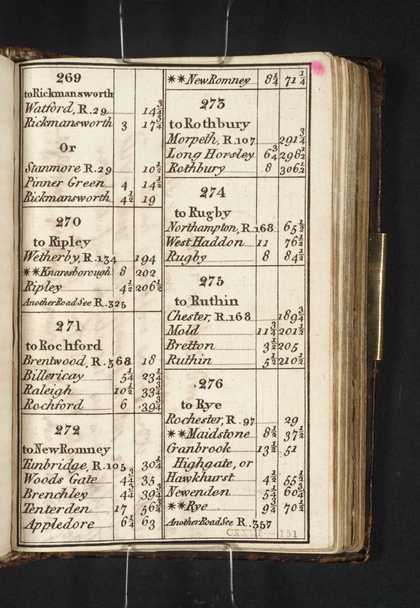 269
to Rickmansworth
Watford, R. 29 14¾
Rickmansworth 3 17¾
Or
Stanmore R. 29 10½
Pinner Green 4 14½
Rickmansworth 4½ 19
270
to Ripley
Wetherby, R. 134 194
**Knaresborough 8 202
Ripley 4½ 206½
Another Road See R. 325
271
to Rochford
Brentwood, R. 368 18
Billericay 5¼ 23¼
Raleigh 10½ 33¾
Rochford 6 39¾
272
to New Romney
Tunbridge, R. 105 30¼
Woods Gate 4¾ 35
Brenchley 4¼ 39¼
Tenterden 17 56¼
Appledore 6¾ 63
**New Romney 8¼ 71¼
273
to Rothbury
Morpeth, R. 107 291¾
Long Horsley 6¾ 298½
Rothbury 8 306½
274
to Rugby
Northampton, R. 168 65½
West Haddon 11 76½
Rugby 8 84½
275
to Ruthin
Chester, R. 168 189¾
Mold 11¾ 201½
Bretton 3½ 205
Ruthin 5½ 210½
276
to Rye
Rochester, R. 97 29
**Maidstone 8½ 37½
Cranbrook 13½ 51
Highgate, or
Hawkhurst 4½ 55½
Newenden 5¼ 60¾
**Rye 9¾ 70½
Another Road See R. 357